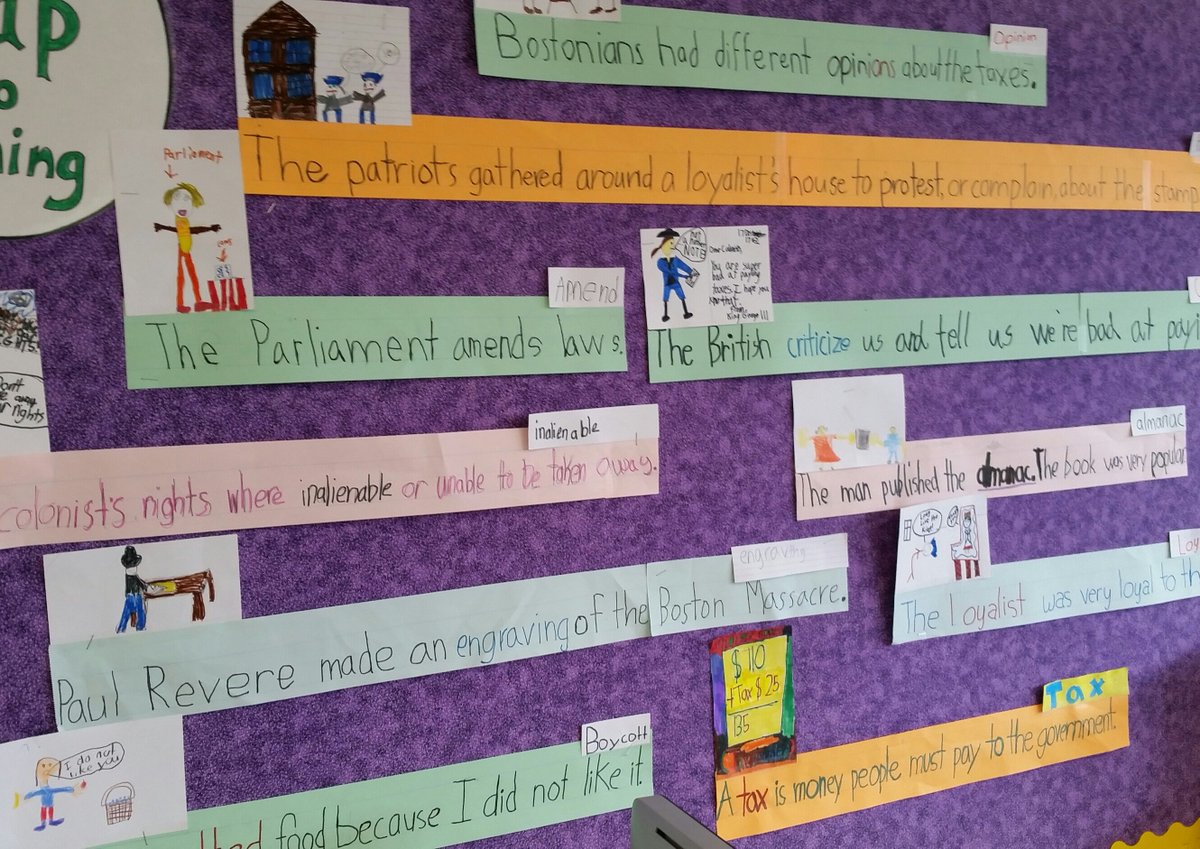 ning
Bostonians had different opinions about the taxes.
Opinion
The patriots gathered around a loyalist's house to protest, or complain, about the stamp
Parliament
Amend
The Parliament amends laws.
not a human NOTE
Dear Colonists,
You are super
bad at paying
taxes. I hope you
From
King George III
The British criticize us and tell us we're bad at
inalienable
colonist's rights where inalienable or unable to be taken away.
almanac
The man published the almanac. The book was very popular
engraving
Paul Revere made an engraving of the Boston Massacre.
Long live the King!
The loyalist was very loyal to
$110
+Tax $25
135
Tax
A tax is money people must pay to the government.
I do not
like you
Boycott
food because I did not like it.